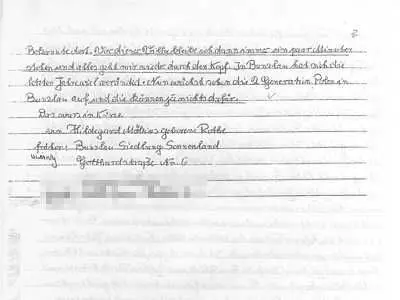 2
Bekannte dort. Vor dieser Stelle bleibe ich dann immer ein paar Minuten
stehen und alles geht mir wieder durch den Kopf. In Bunzlau hat sich die
letzten Jahre viel verändert. Nun wächst schon die 2 Generation Polen in
Bunzlau auf und die können ja nichts dafür.
Das war es in Kürze
von Hildegard Mathias geborene Rothe
früher: Bunzlau Siedlung Sonnenland
Gotthardstraße Nr. 6